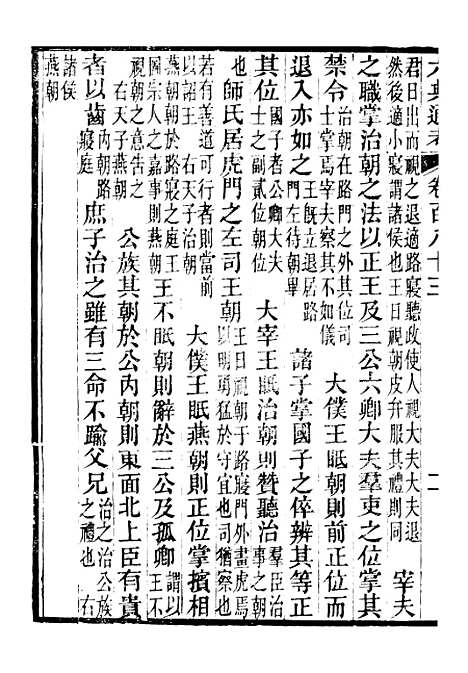 六典通考 卷百八十三 二
君日出而視之退適路寢聽政使人視大夫大夫退
然後適小寢謂諸侯也王日視朝皮弁服其禮則同
宰夫
之職掌治朝之法以正王及三公六卿大夫羣吏之位掌其
禁令
治朝在路門之外其位司
士掌焉宰夫察其不如儀
大僕王眡朝則前正位而
退入亦如之
王既立退居路
門左待朝畢
諸子掌國子之倅辨其等正
其位
國子者公卿大夫
士之副貳位朝位
大宰王眡治朝則贊聽治
羣臣治
事之朝
也
師氏居虎門之左司王朝
王日視朝於路寢門外畫虎焉
以明勇猛於守宜也司猶察也
若有善道可行者則當前
以詔王 右天子治朝
大僕王眡燕朝則正位掌擯相
燕朝朝於路寢之庭王
圖宗人之嘉事則燕朝
王不眡朝則辭於三公及孤卿
謂以
王不
視朝之意告之
右天子燕朝
公族其朝於公內朝則東面北上臣有貴
者以齒
內朝路
寢庭
庶子治之雖有三命不踰父兄
治之治公族
之禮也 右
諸侯
燕朝